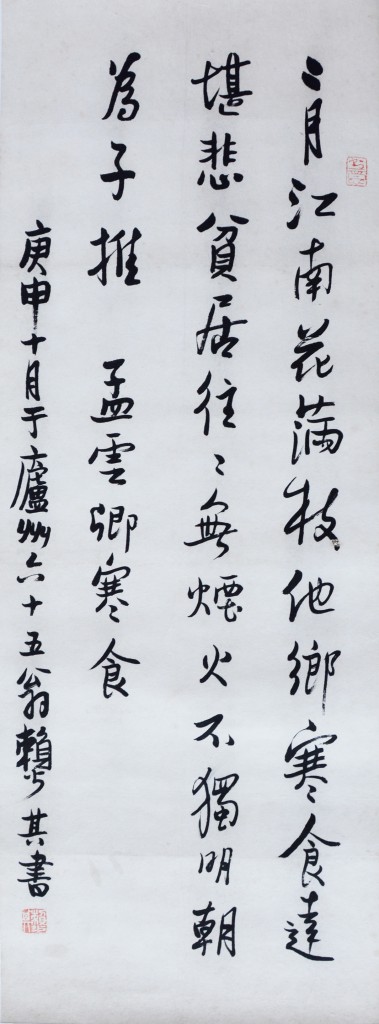 二月江南花滿枝他鄉寒食遠
堪悲貧居往〻無煙火不獨明朝
為子推　孟雲卿寒食
庚申十月于廬州六十五翁賴少其書